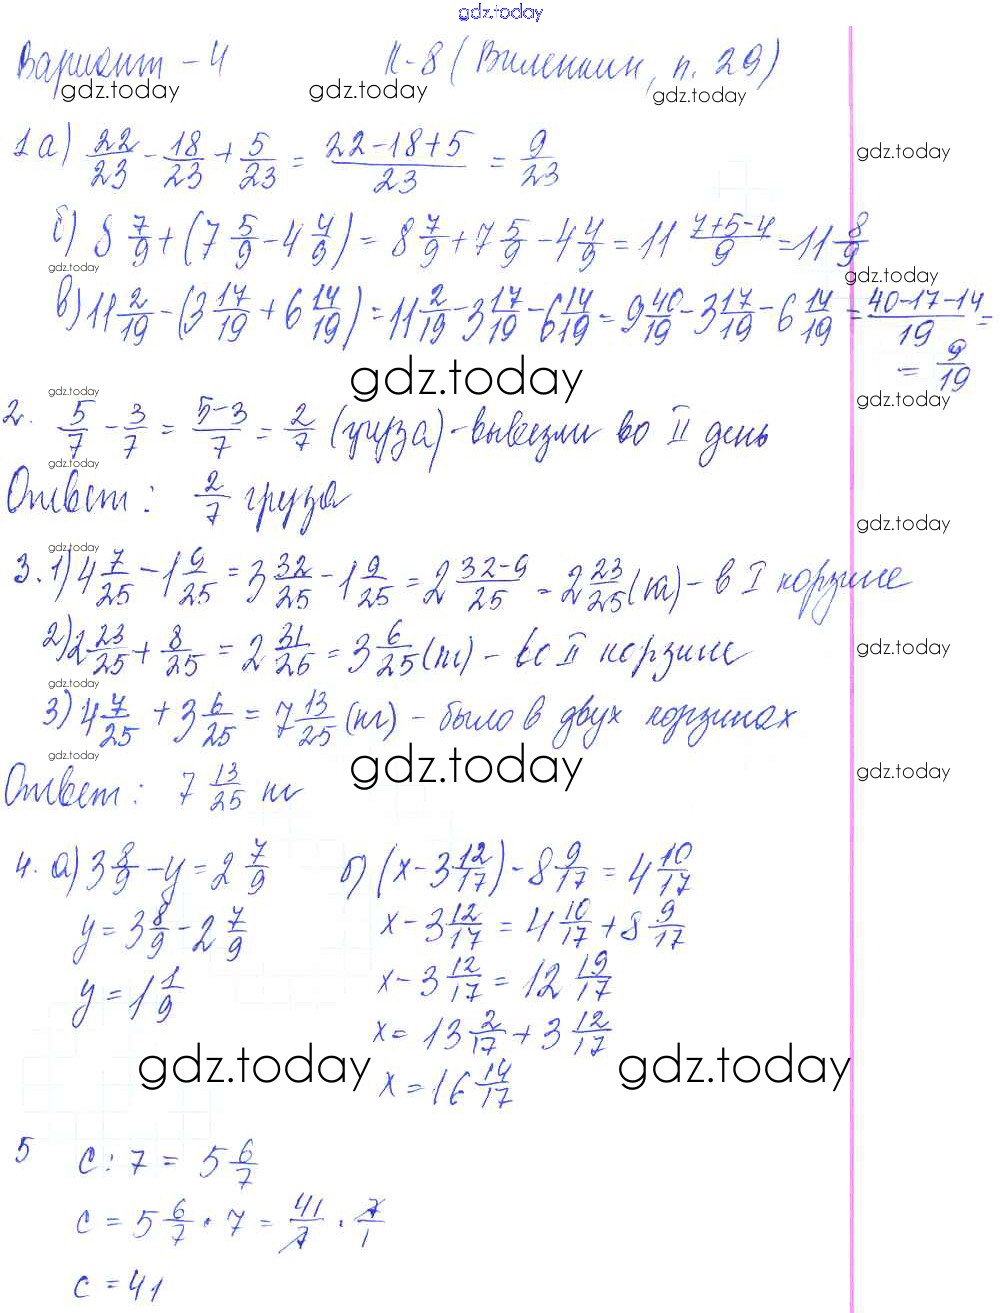 gdz.today
Вариант - 4 К-8 (Виленкин, п. 29)
gdz.today gdz.today gdz.today
1 а) 22/23 - 18/23 + 5/23 = (22-18+5)/23 = 9/23
gdz.today
б) 8 7/9 + (7 5/9 - 4 4/9) = 8 7/9 + 7 5/9 - 4 4/9 = 11 (7+5-4)/9 = 11 8/9
gdz.today gdz.today
в) 11 2/19 - (3 17/19 + 6 14/19) = 11 2/19 - 3 17/19 - 6 14/19 = 9 40/19 - 3 17/19 - 6 14/19 = (40-17-14)/19 =
= 9/19
gdz.today
gdz.today gdz.today
2. 5/7 - 3/7 = (5-3)/7 = 2/7 (груза) - вывезли во II день
gdz.today
Ответ: 2/7 груза
gdz.today
gdz.today
3. 1) 4 7/25 - 1 9/25 = 3 32/25 - 1 9/25 = 2 (32-9)/25 = 2 23/25 (кг) - в I корзине
gdz.today
2) 2 23/25 + 8/25 = 2 31/26 = 3 6/25 (кг) - во II корзине
gdz.today
gdz.today
3) 4 7/25 + 3 6/25 = 7 13/25 (кг) - было в двух корзинах
gdz.today gdz.today
gdz.today
Ответ: 7 13/25 кг
4. а) 3 8/9 - y = 2 7/9 б) (x - 3 12/17) - 8 9/17 = 4 10/17
y = 3 8/9 - 2 7/9 x - 3 12/17 = 4 10/17 + 8 9/17
y = 1 1/9 x - 3 12/17 = 12 19/17
x = 13 2/17 + 3 12/17
gdz.today gdz.today
x = 16 14/17
5 c : 7 = 5 6/7
c = 5 6/7 · 7 = 41/7 · 7/1
c = 41